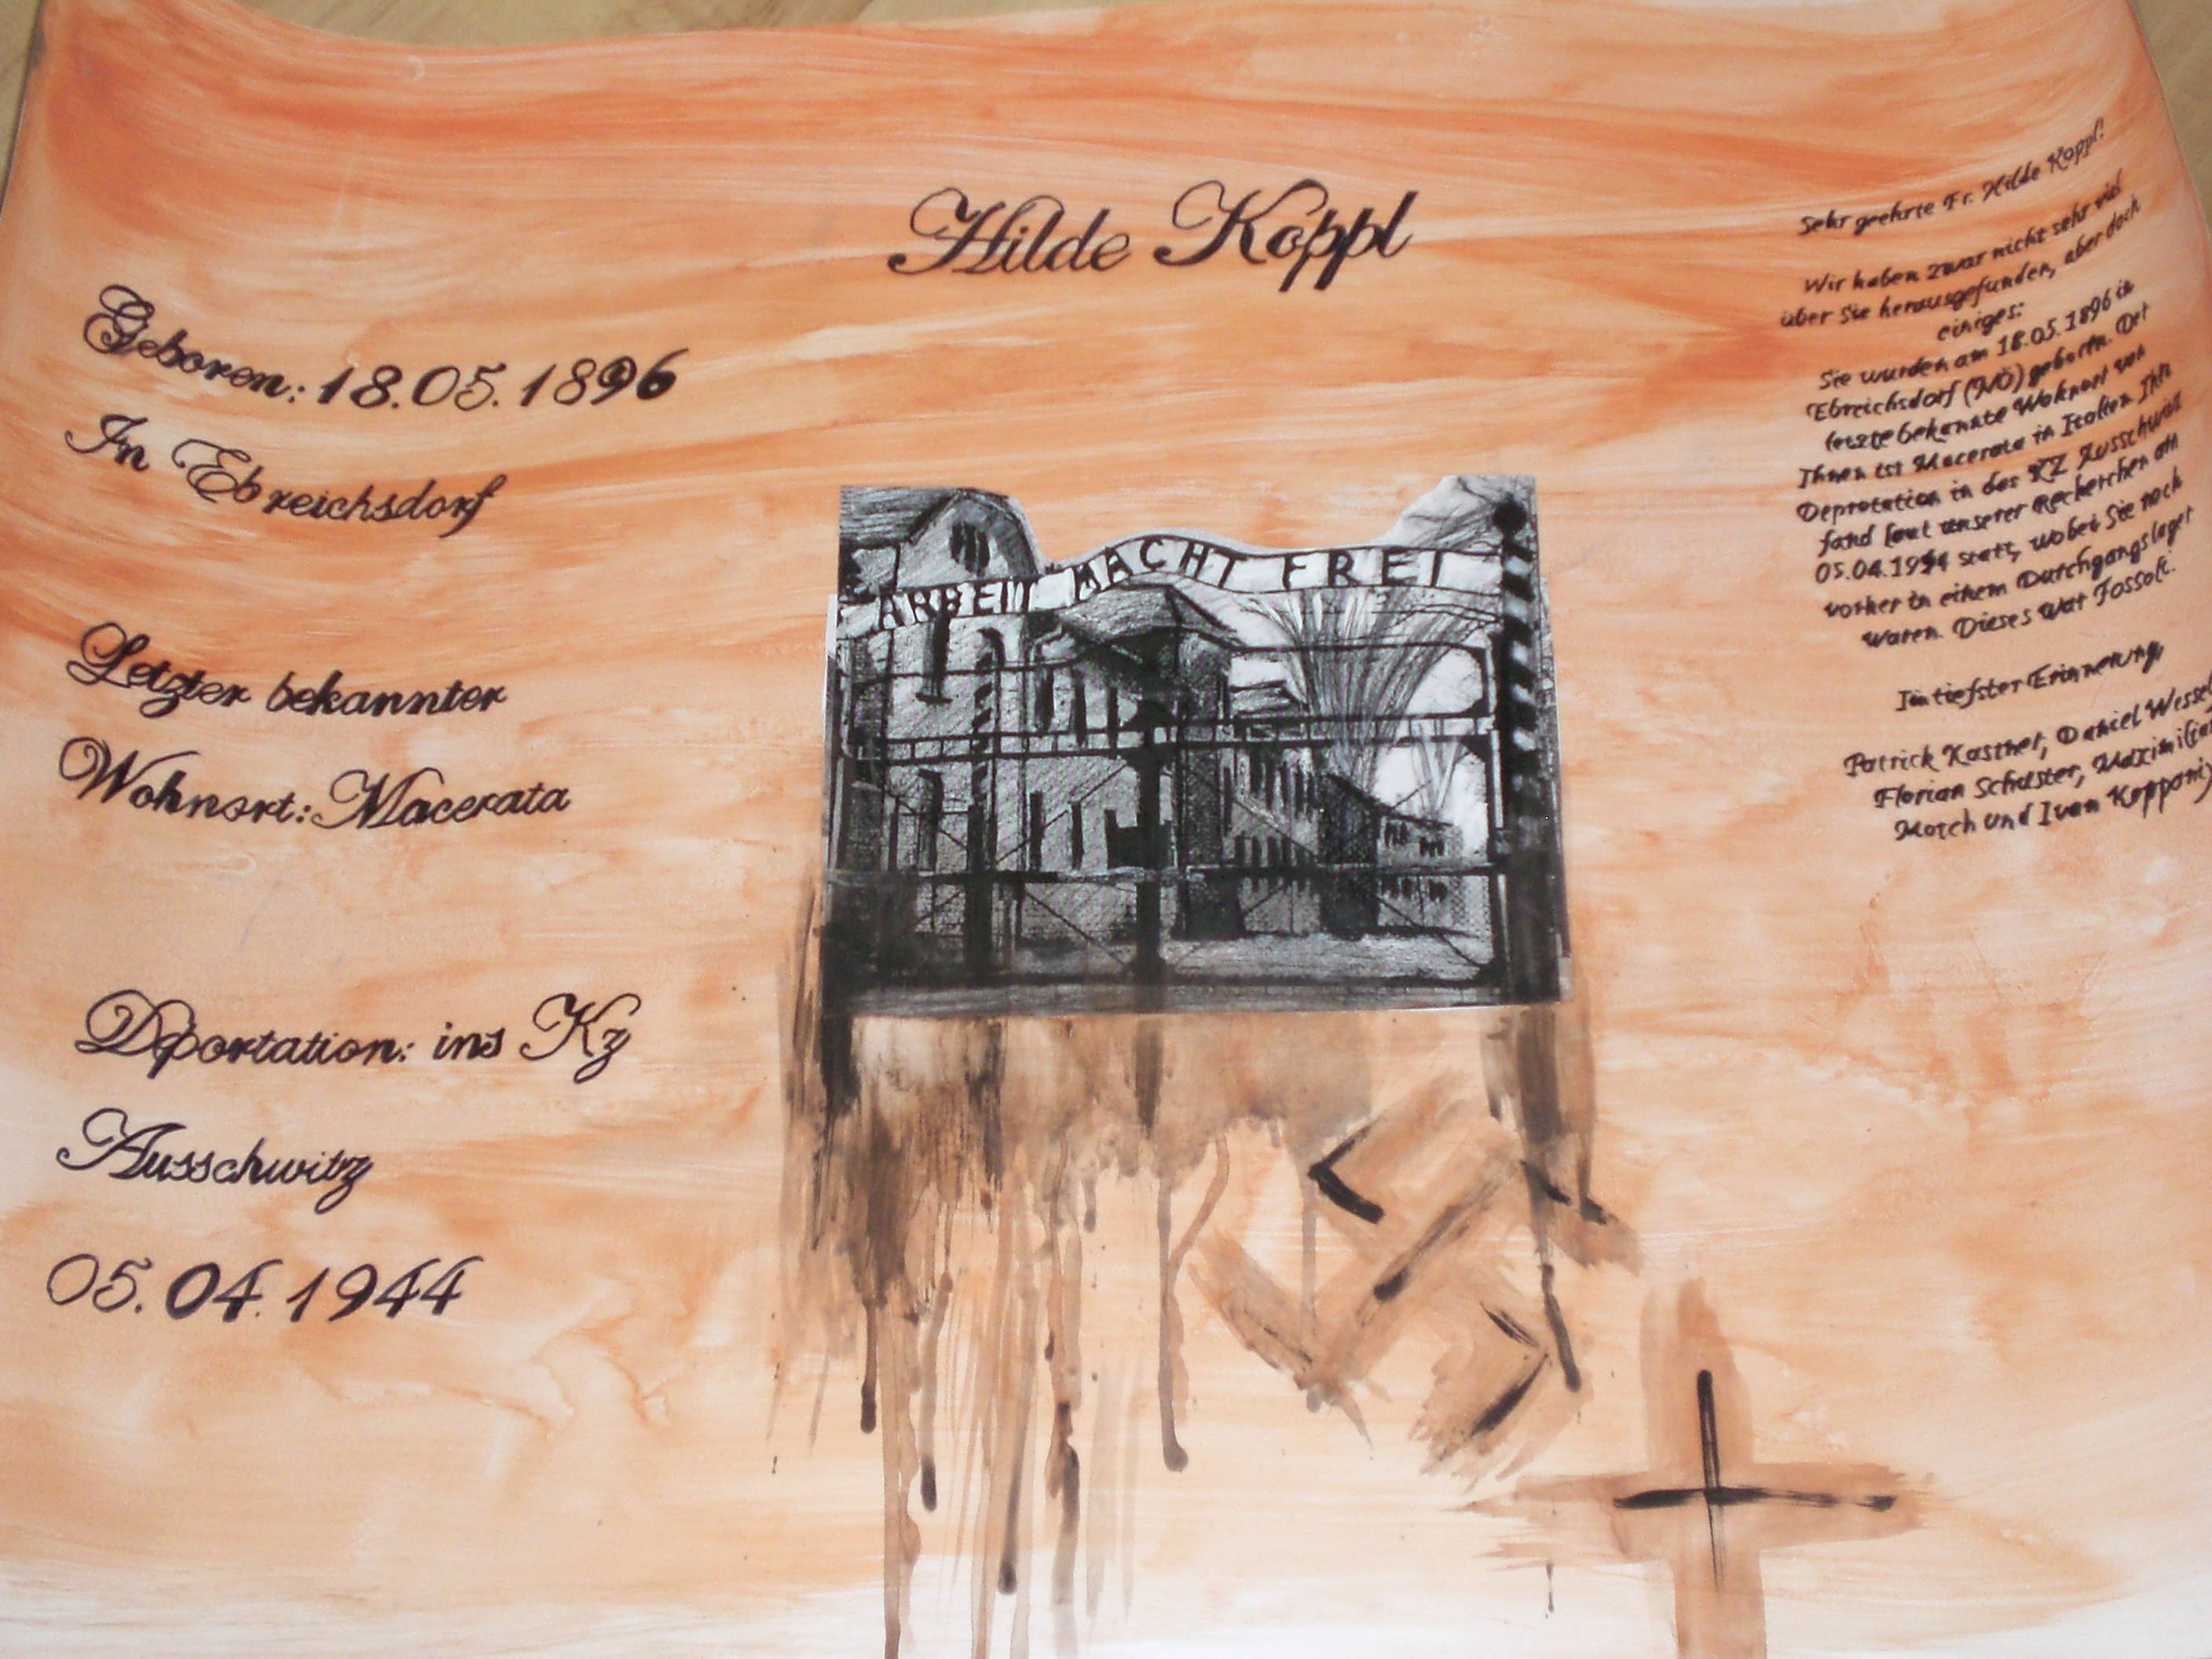 Hilde Koppl
Geboren: 18.05.1896
In Ebreichsdorf
Letzter bekannter
Wohnort: Macerata
Deportation: ins Kz
Ausschwitz
05.04.1944
ARBEIT MACHT FREI
Sehr geehrte Fr. Hilde Koppl!
Wir haben zwar nicht sehr viel
über Sie herausgefunden, aber doch
einiges:
Sie wurden am 18.05.1896 in
Ebreichsdorf (NÖ) geboren. Der
letzte bekannte Wohnort von
Ihnen ist Macerata in Italien Ihre
Deprotation in das KZ Ausschwitz
fand laut unserer Recherchen am
05.04.1944 statt, wobei Sie noch
vorher in einem Durchgangslager
waren. Dieses war Fossoli.
In tiefster Erinnerung,
Patrick Kastner, Daniel
Florian Schuster, Maximilian
Motch und Ivan